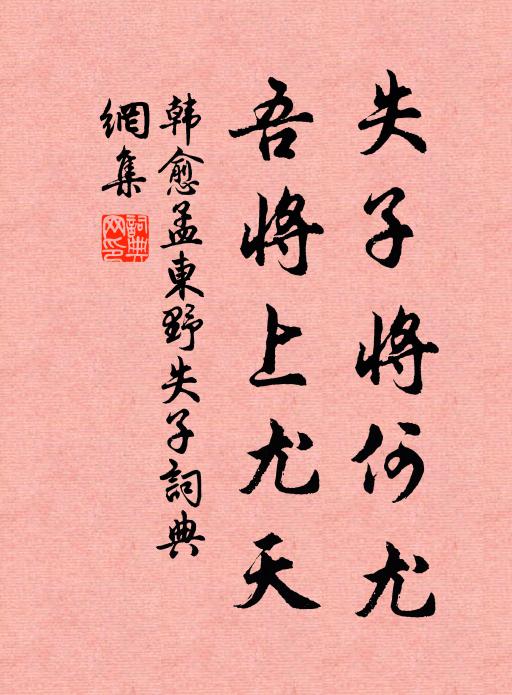 失子將何尤
吾將上尤天
韓愈孟東野失子詞典
網集
詞典
网印